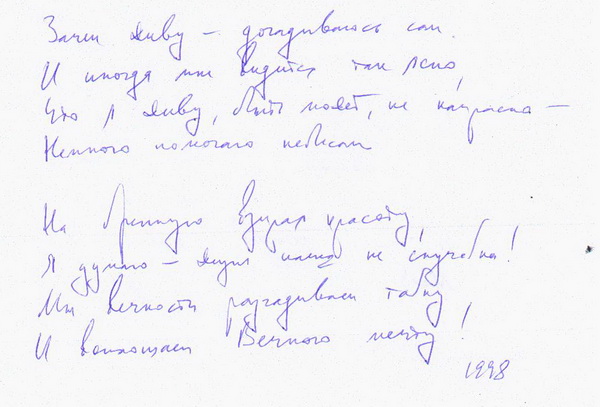 Зачем живу – догадываюсь сам.
И иногда мне видится так ясно,
Что я живу, быть может, не напрасно –
Немного помогаю небесам
На бренную взирая красоту,
Я думаю – жизнь наша не случайна!
Мы вечности разгадываем тайну
И воплощаем Вечного мечту!
1998